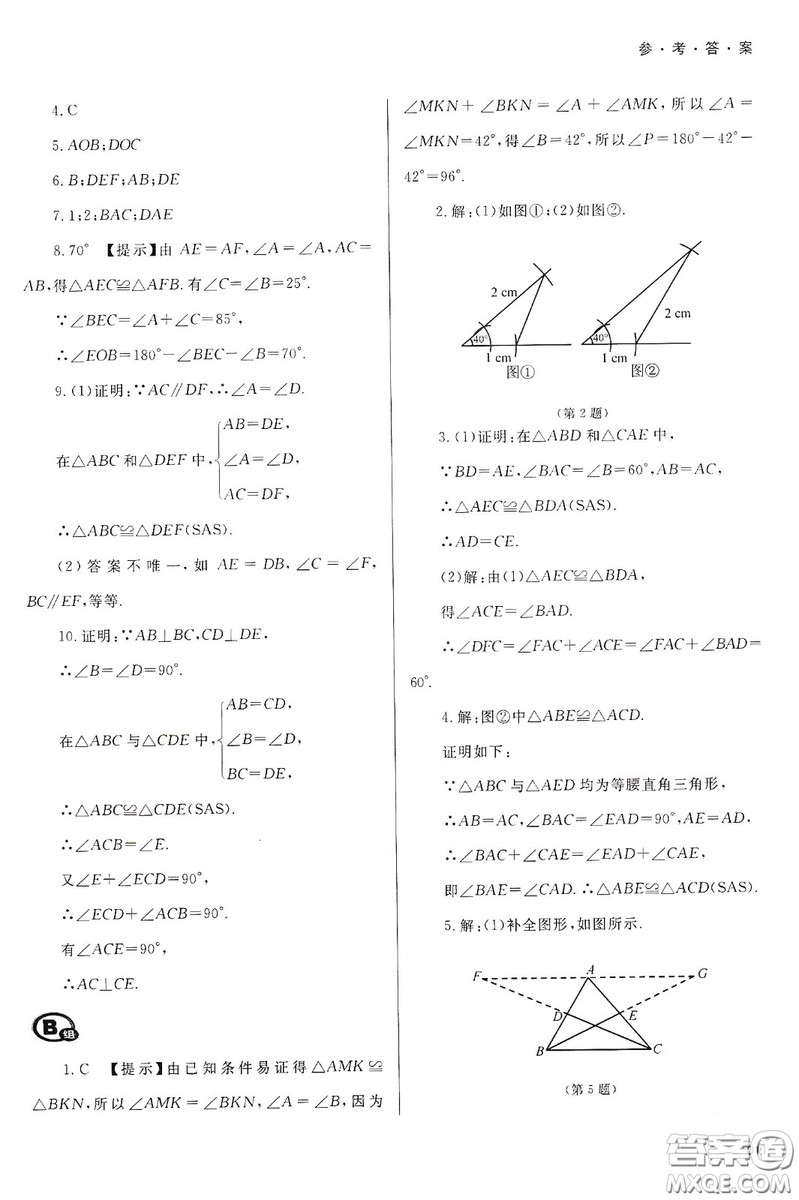 参·考·答·案
4.C
5.AOB;DOC
6.B;DEF;AB;DE
7.1;2;BAC;DAE
8.70°【提示】由 AE=AF,∠A=∠A,AC=
AB,得△AEC≌△AFB.有∠C=∠B=25°.
∵∠BEC=∠A+∠C=85°,
∴∠EOB=180°-∠BEC-∠B=70°.
9.(1)证明:∵AC∥DF,∴∠A=∠D.
AB=DE,
在△ABC 和△DEF 中,∠A=∠D,
AC=DF,
∴△ABC≌△DEF(SAS).
(2)答案不唯一,如 AE=DB,∠C=∠F,
BC∥EF,等等.
10.证明:∵AB⊥BC,CD⊥DE,
∴∠B=∠D=90°.
AB=CD,
在△ABC 与△CDE 中,∠B=∠D,
BC=DE,
∴△ABC≌△CDE(SAS).
∴∠ACB=∠E.
又∠E+∠ECD=90°,
∴∠ECD+∠ACB=90°.
有∠ACE=90°,
∴AC⊥CE.
B组
1.C 【提示】由已知条件易证得△AMK≌
△BKN,所以∠AMK=∠BKN,∠A=∠B,因为
∠MKN+∠BKN=∠A+∠AMK,所以∠A=
∠MKN=42°,得∠B=42°,所以∠P=180°-42°-
42°=96°.
2.解:(1)如图①;(2)如图②.
2 cm
40°
1 cm
图①
2 cm
40°
1 cm
图②
(第2题)
3.(1)证明:在△ABD 和△CAE 中,
∵BD=AE,∠BAC=∠B=60°,AB=AC,
∴△AEC≌△BDA(SAS).
∴AD=CE.
(2)解:由(1)△AEC≌△BDA,
得∠ACE=∠BAD.
∴∠DFC=∠FAC+∠ACE=∠FAC+∠BAD=
60°.
4.解:图②中△ABE≌△ACD.
证明如下:
∵△ABC 与△AED 均为等腰直角三角形,
∴AB=AC,∠BAC=∠EAD=90°,AE=AD,
∴∠BAC+∠CAE=∠EAD+∠CAE,
即∠BAE=∠CAD.∴△ABE≌△ACD(SAS).
5.解:(1)补全图形,如图所示.
F A G
D E
B C
(第5题)
答案圈
MXQE.COM